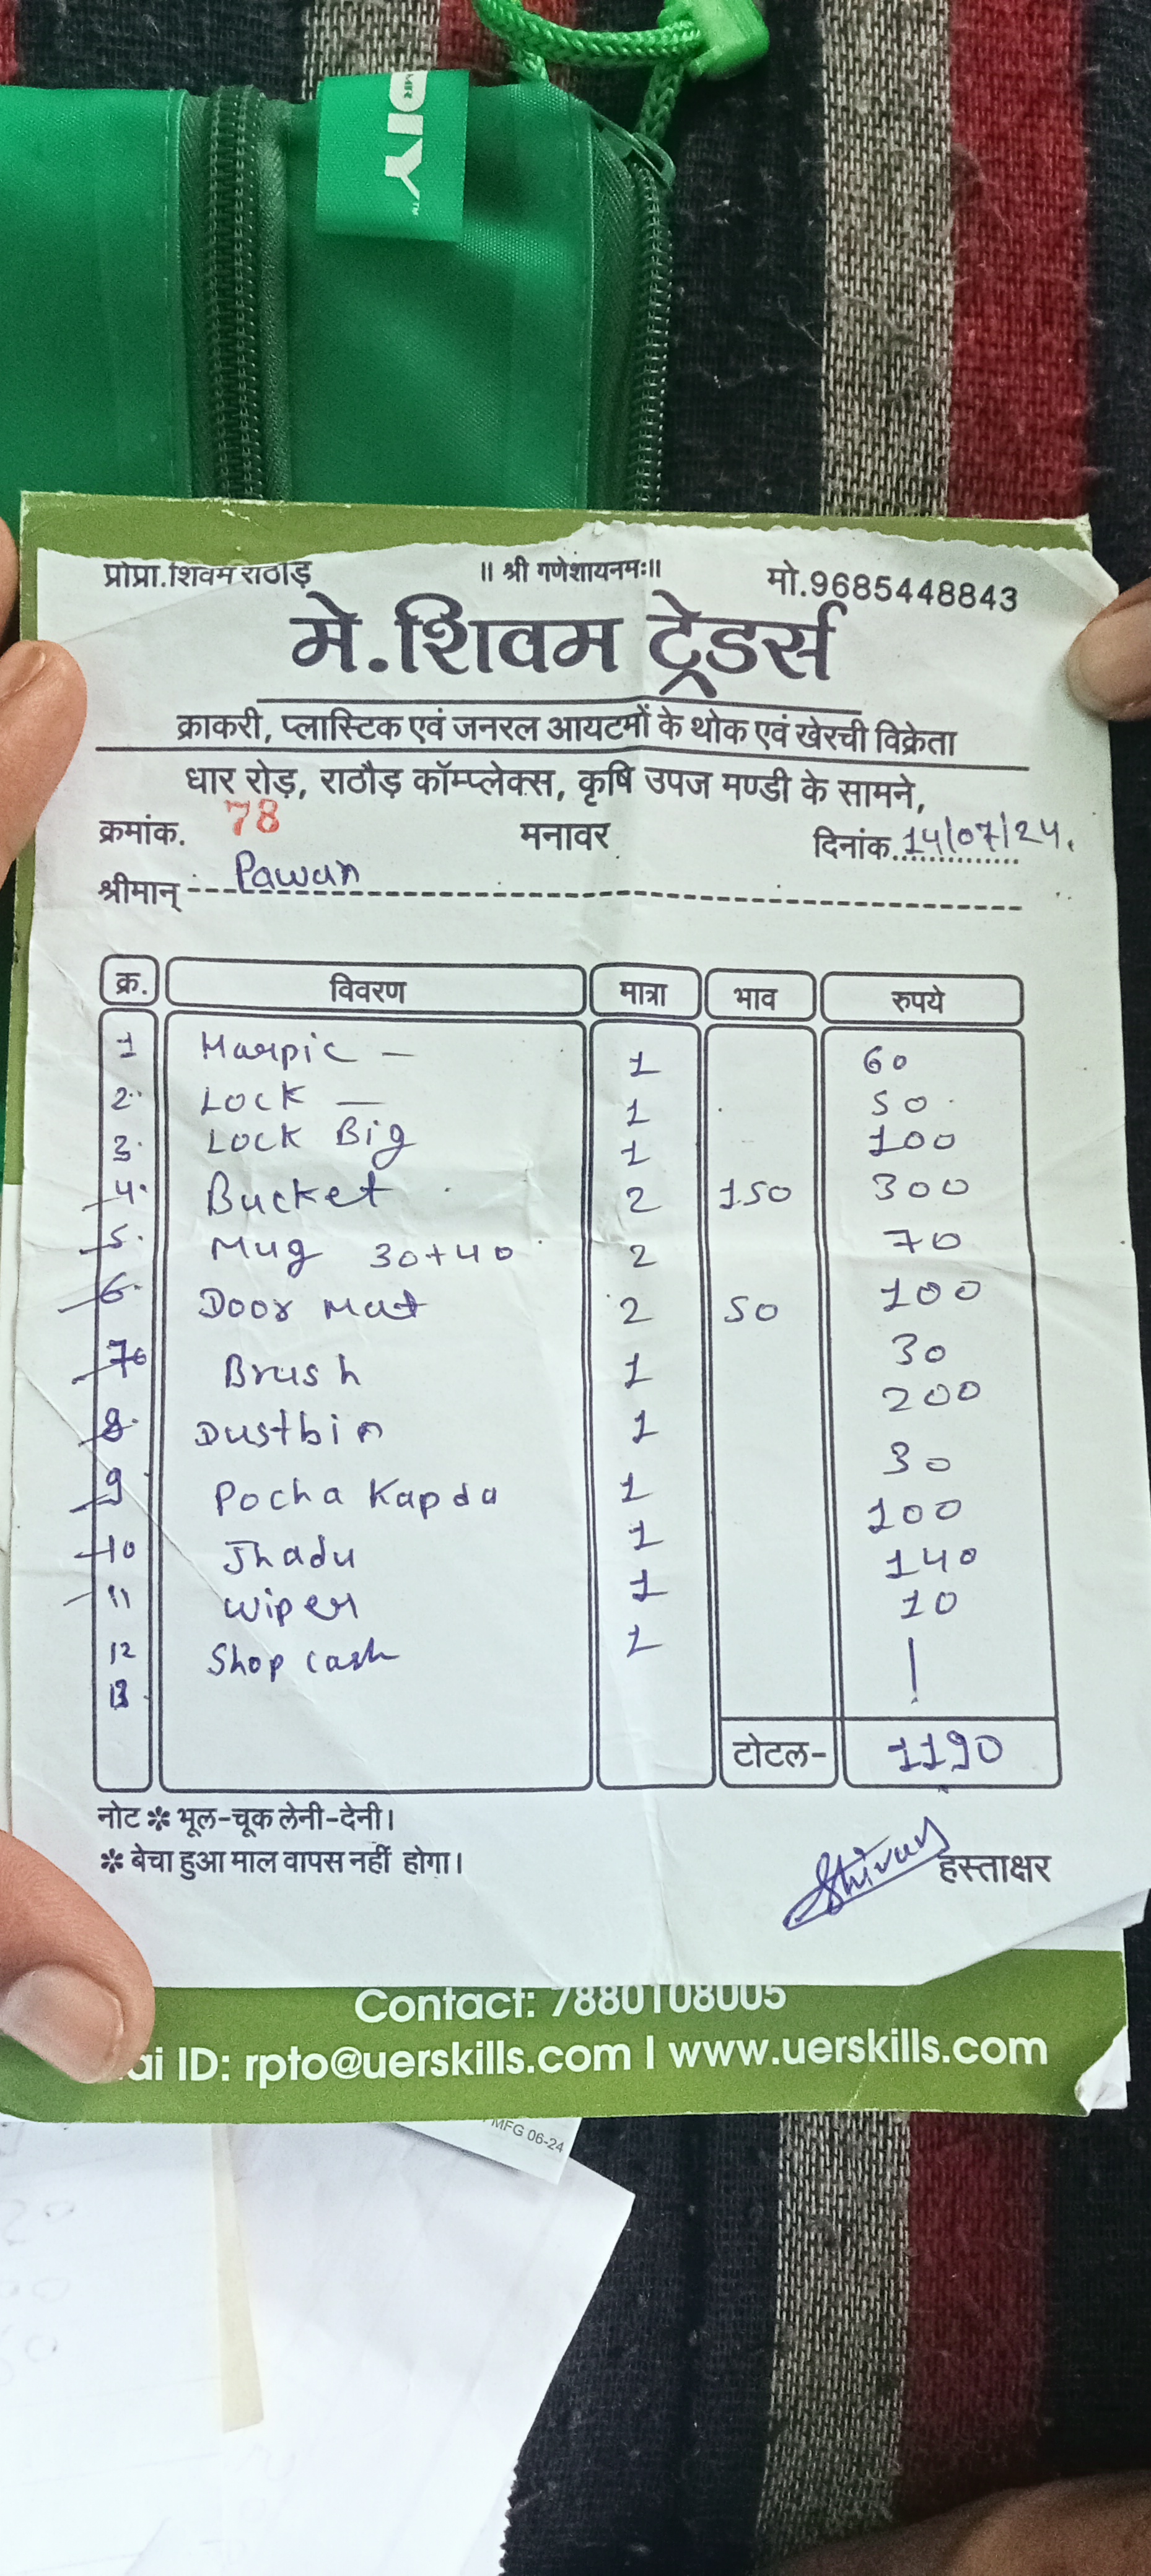 MR DIY™
प्रोप्रा.शिवम राठौड़ ॥ श्री गणेशायनमः॥ मो.9685448843
मे.शिवम ट्रेडर्स
क्राकरी, प्लास्टिक एवं जनरल आयटमों के थोक एवं खेरची विक्रेता
धार रोड़, राठौड़ कॉम्प्लेक्स, कृषि उपज मण्डी के सामने,
क्रमांक. 78 मनावर दिनांक 14/07/24.
श्रीमान् Pawan
क्र. विवरण मात्रा भाव रुपये
1 Harpic — 1 60
2. Lock — 1 50
3. Lock Big 1 100
4. Bucket 2 150 300
5. Mug 30+40 2 70
6. Door Mat 2 50 100
7. Brush 1 30
8. Dustbin 1 200
9 Pocha Kapda 1 30
10 Jhadu 1 100
11 Wiper 1 140
12 Shop cash 1 10
13
टोटल- 1190
नोट ❉ भूल-चूक लेनी-देनी।
❉ बेचा हुआ माल वापस नहीं होगा।
Shivam हस्ताक्षर
Contact: 7880108005
ai ID: rpto@uerskills.com | www.uerskills.com
MFG 06-24